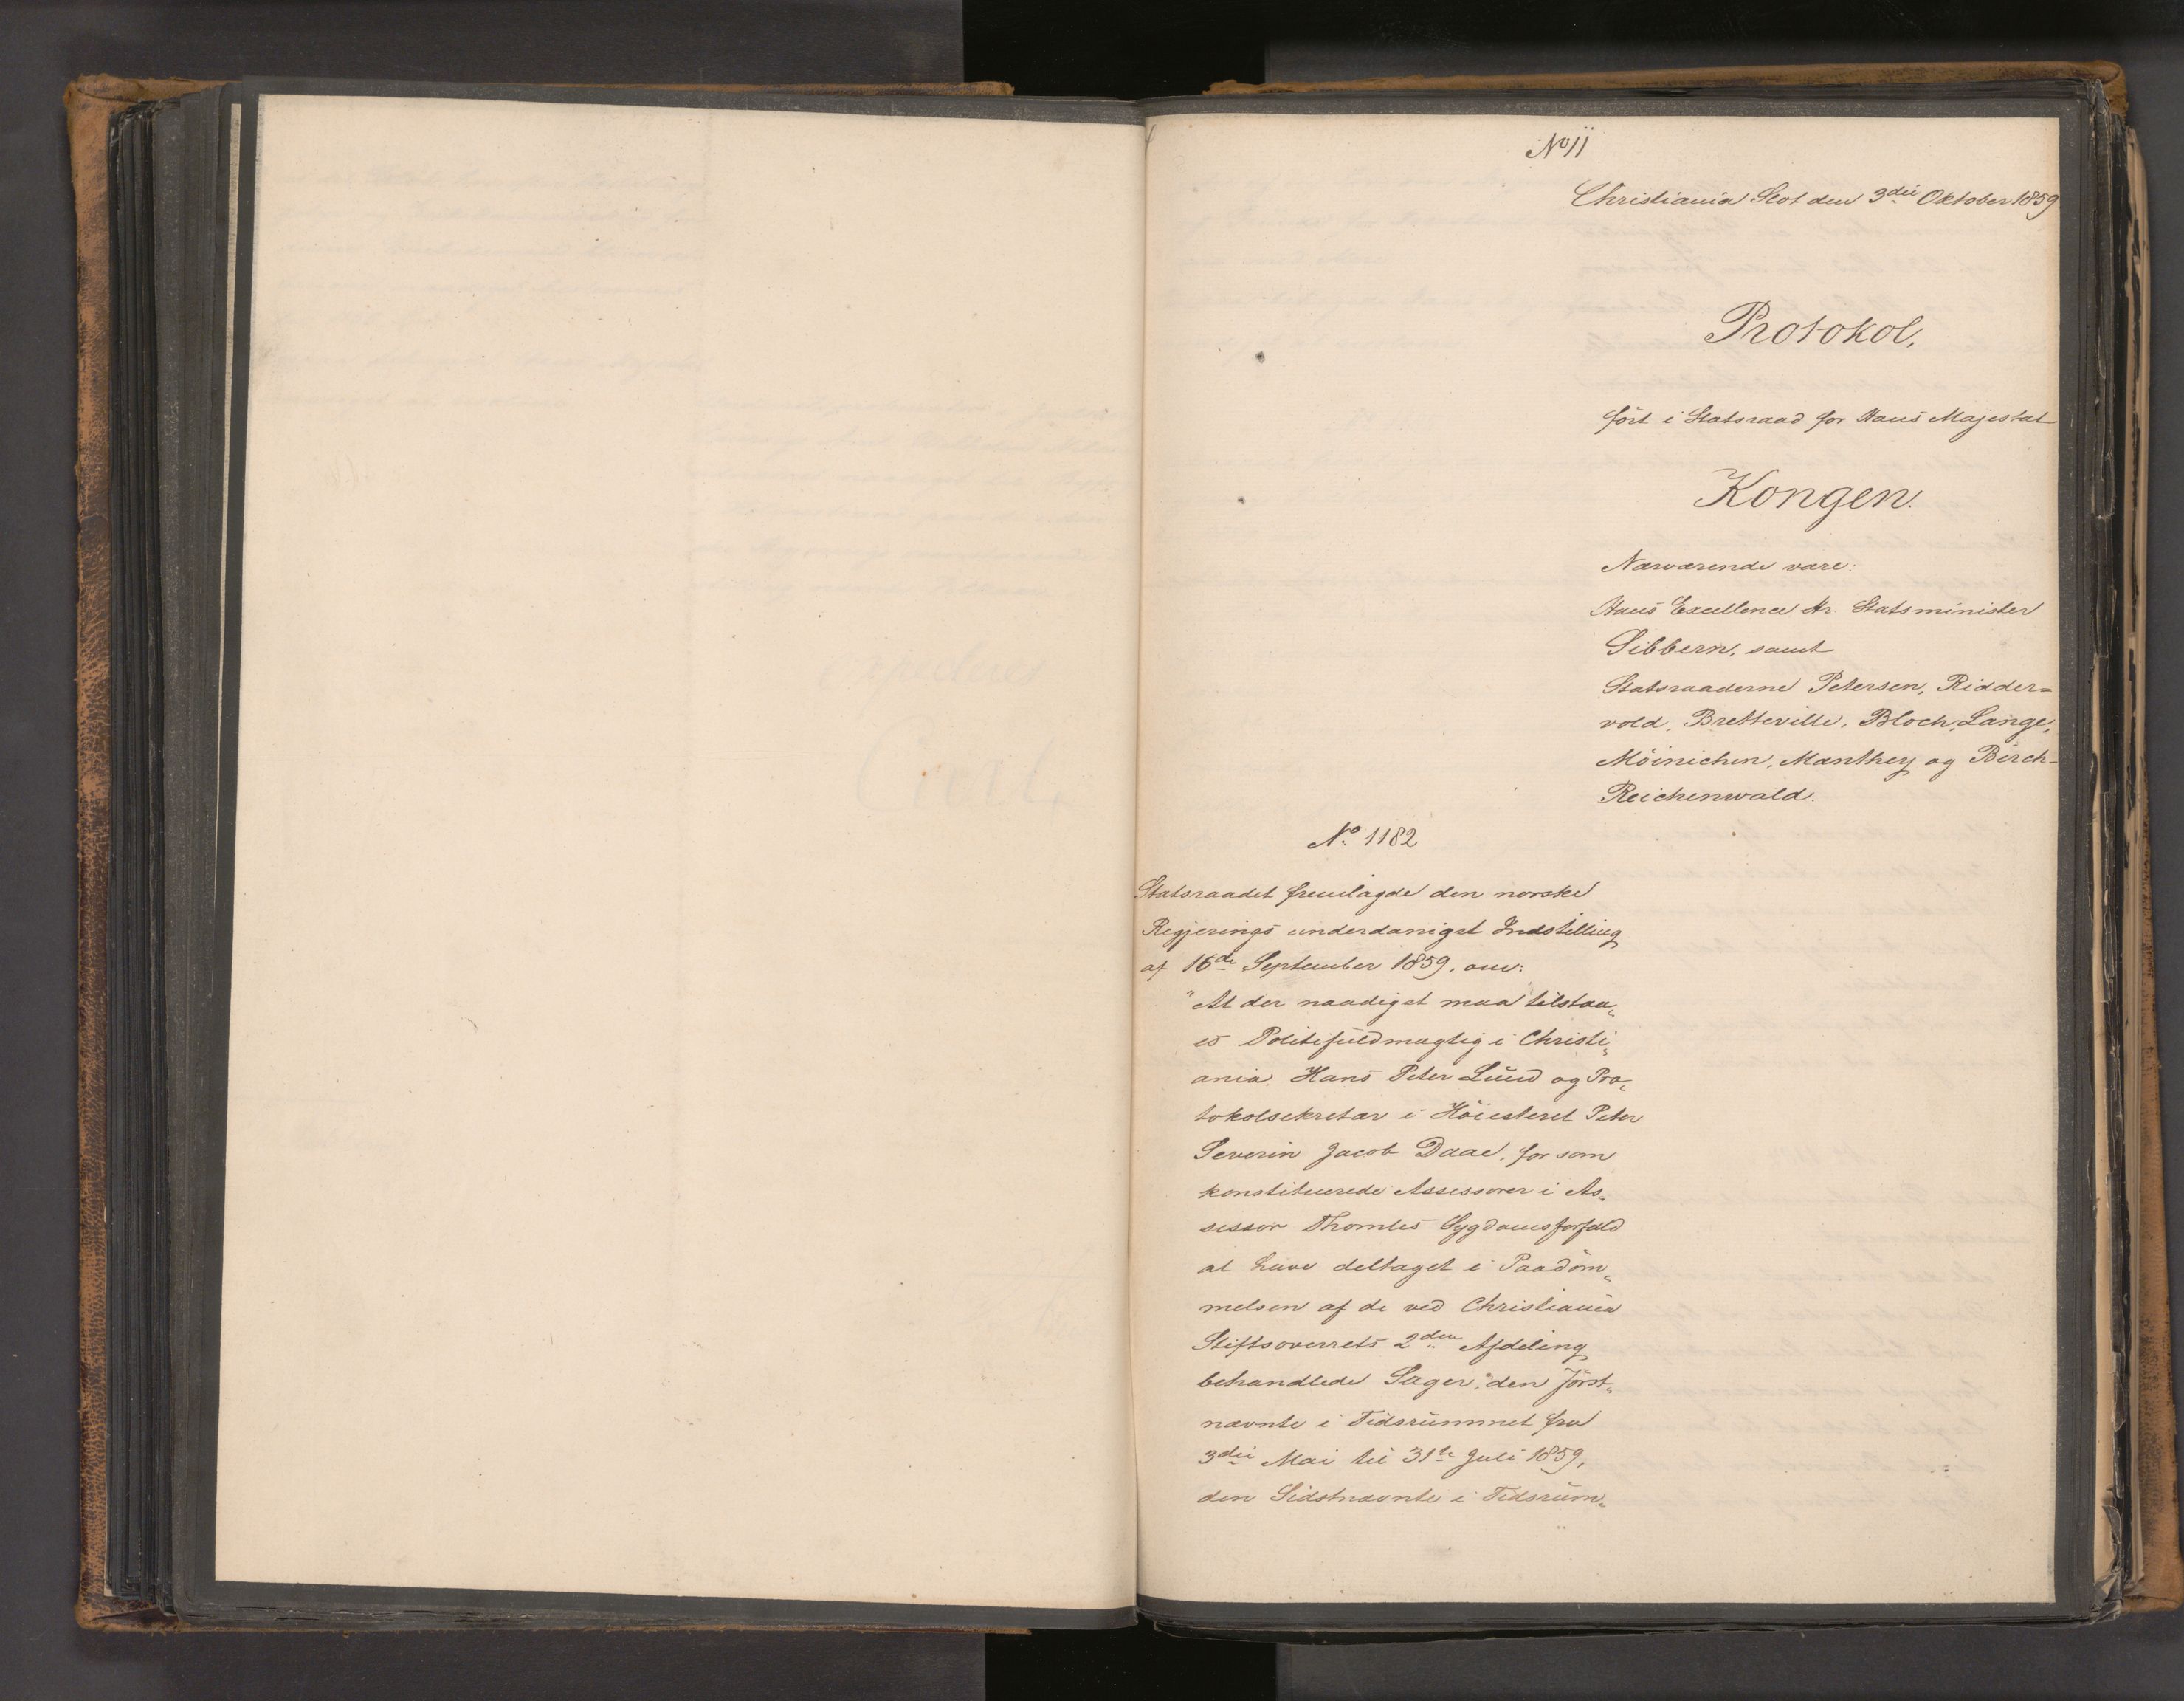 No 11
Christiania Slot den 3die Oktober 1859
Protokol,
ført i Statsraad for Hans Majestæt
Kongen.
Nærværende vare:
Hans Excellence Hr. Statsminister
Sibbern, samt
Statsraaderne Petersen, Ridder=
vold, Bretteville, Bloch, Lange,
Möinichen, Manthey og Birch-
Reichenwald.
No. 1182
Statsraadet fremlagde den norske
Regjerings underdanigst Indstilling
af 16de September 1859, om:
"At der naadigst maa tilstaa„
es Politifuldmægtig i Christi„
ania Hans Peter Lund og Pro„
tokolsekretær i Höiesteret Peter
Severin Jacob Daae, for som
konstituerede Assessorer i As„
sessor Thomles Sygdomsforfald
at have deltaget i Paadöm„
melsen af de ved Christiania
Stiftsoverrets 2den Afdeling
behandlede Sager, den Först„
nævnte i Tidsrummet fra
3die Mai til 31te Juli 1859,
den Sidstnævnte i Tidsrum„